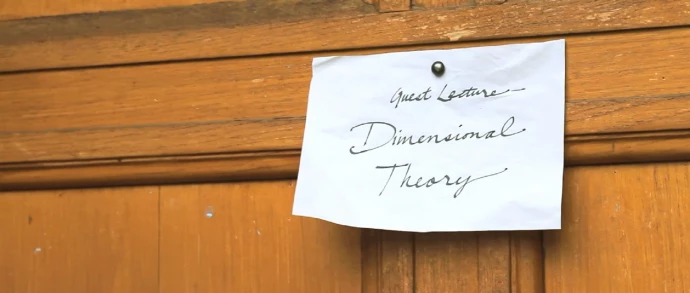 Guest Lecture
Dimensional
Theory